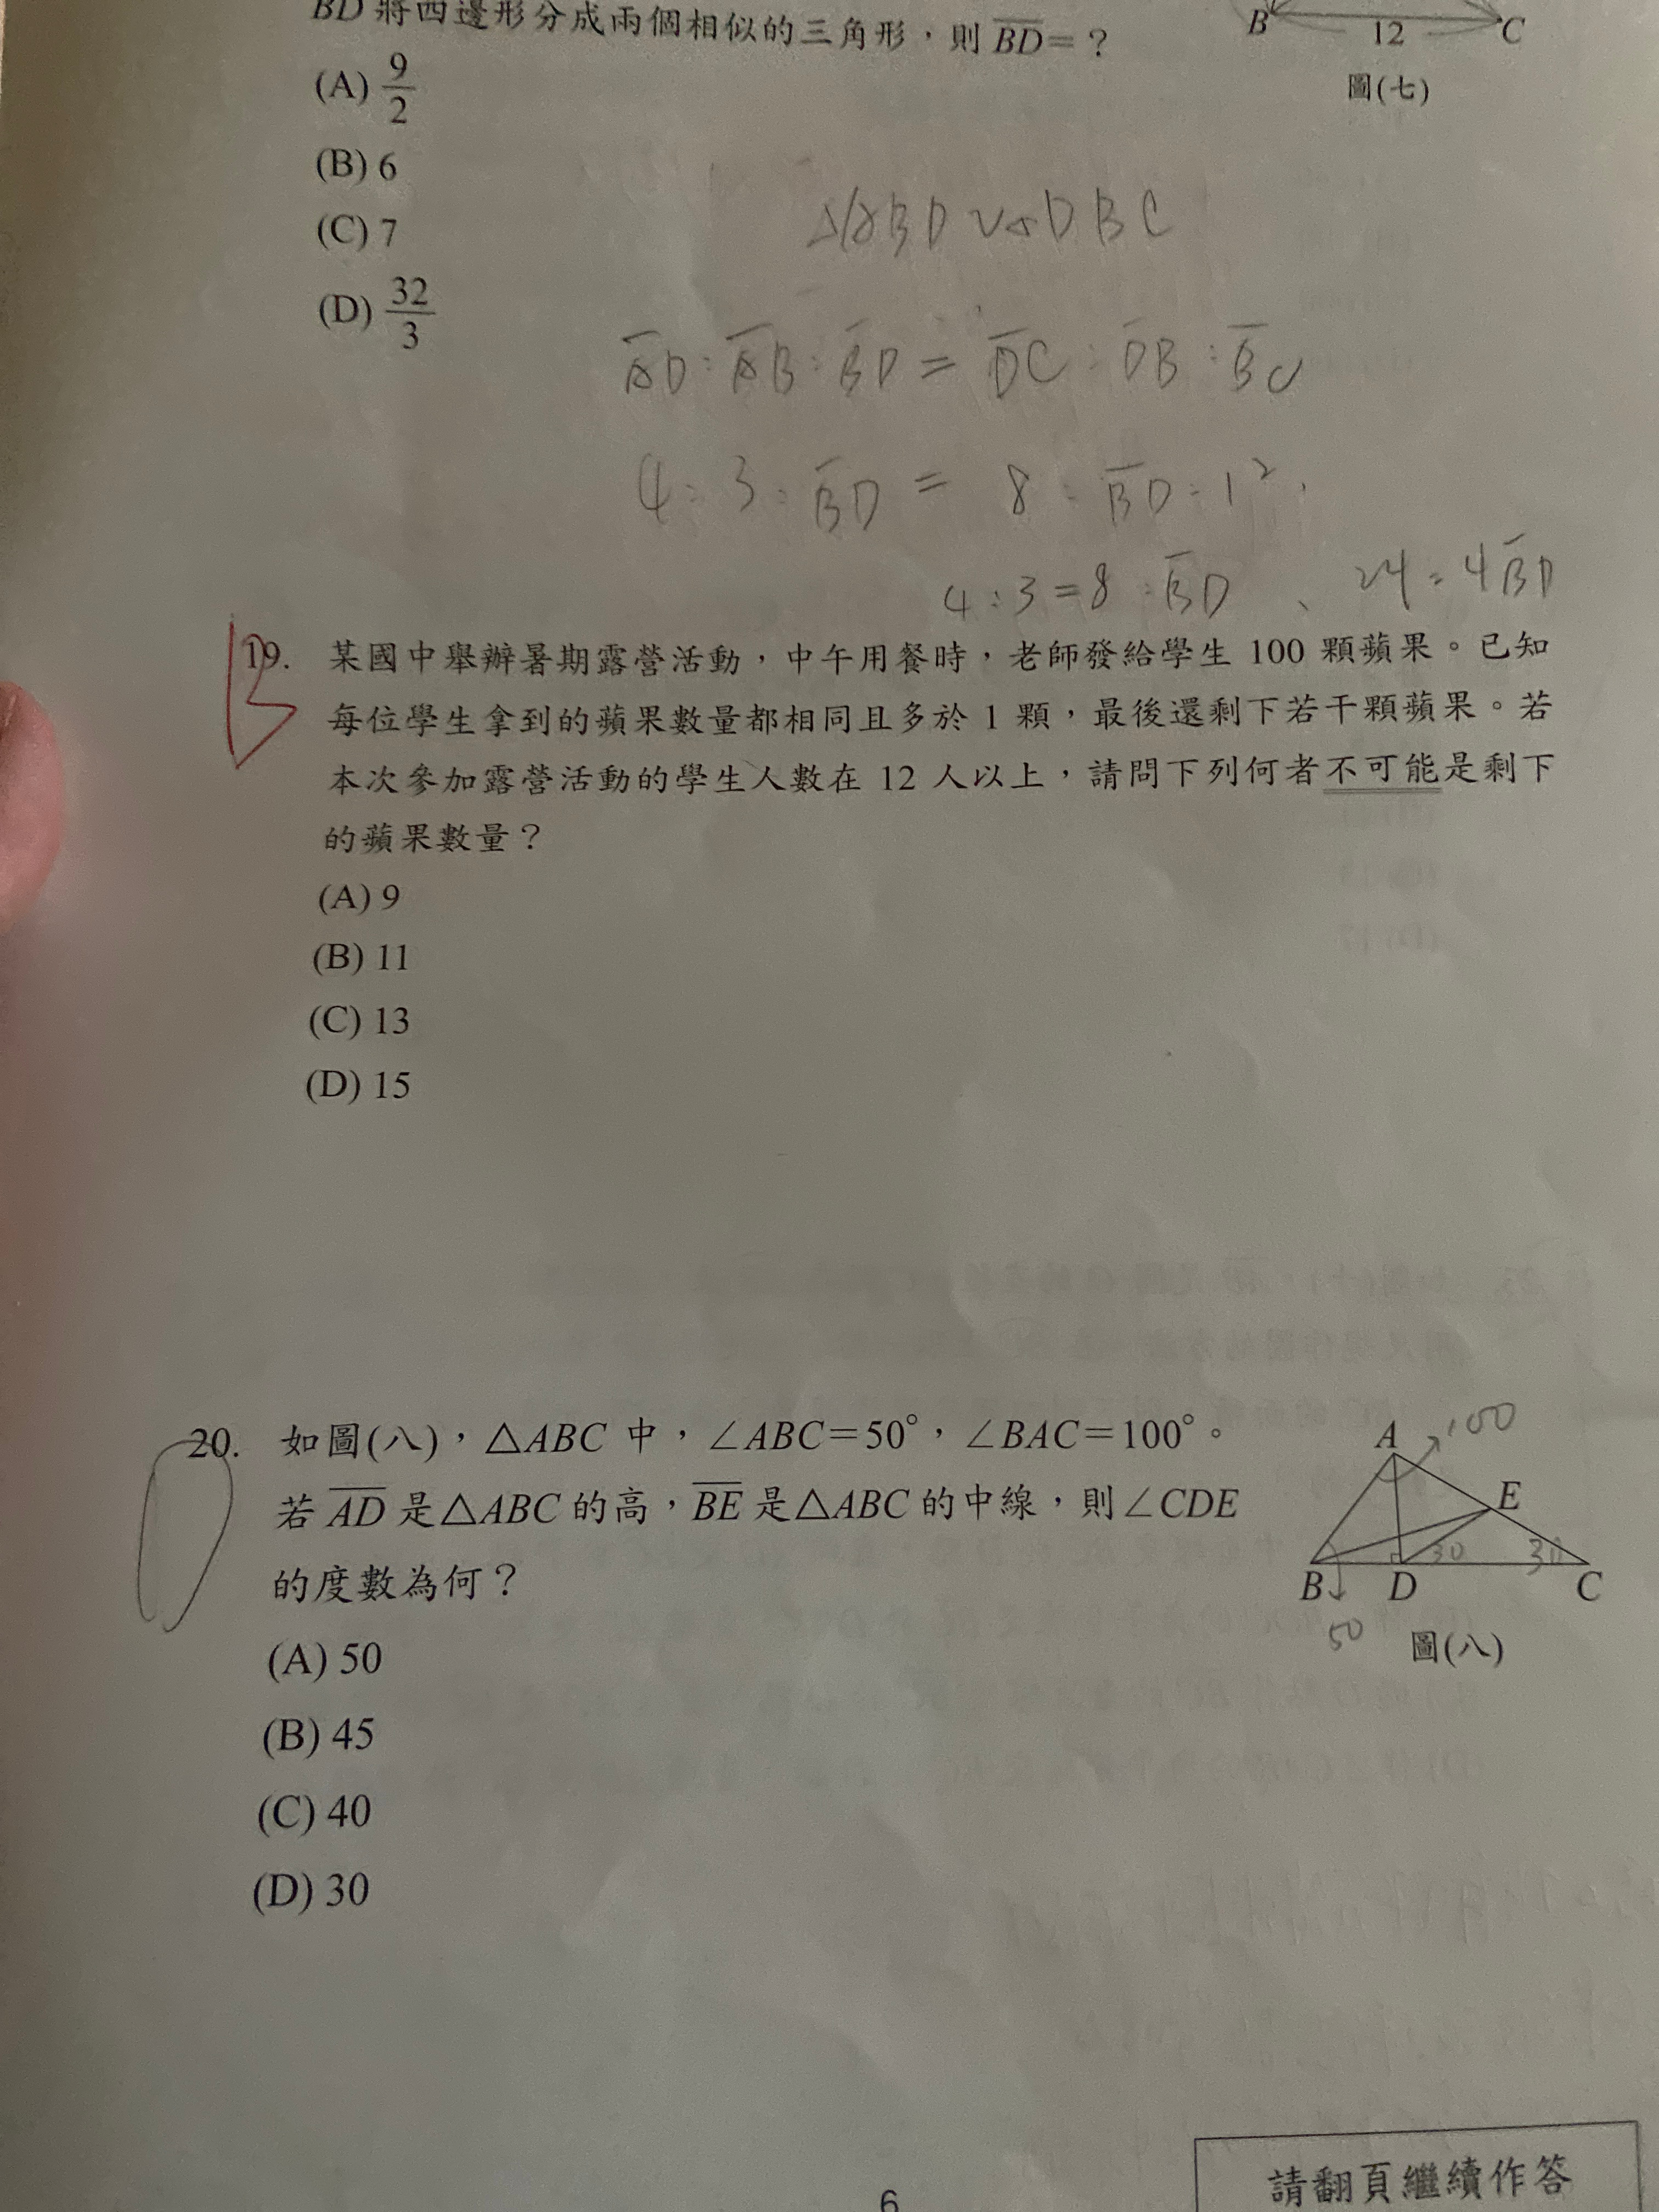 BD 將四邊形分成兩個相似的三角形，則 BD＝？
(A) 9/2
(B) 6
(C) 7
(D) 32/3
B 12 C
圖(七)
△ABD ∽ △DBC
AD : AB : BD = DC : DB : BC
4 : 3 : BD = 8 : BD : 12
4 : 3 = 8 : BD 、 24 = 4BD
B
19. 某國中舉辦暑期露營活動，中午用餐時，老師發給學生 100 顆蘋果。已知
每位學生拿到的蘋果數量都相同且多於 1 顆，最後還剩下若干顆蘋果。若
本次參加露營活動的學生人數在 12 人以上，請問下列何者不可能是剩下
的蘋果數量？
(A) 9
(B) 11
(C) 13
(D) 15
20. 如圖(八)，△ABC 中，∠ABC＝50°，∠BAC＝100°。
若 AD 是△ABC 的高，BE 是△ABC 的中線，則∠CDE
的度數為何？
(A) 50
(B) 45
(C) 40
(D) 30
A 100
E
30 30
B D C
50
圖(八)
請翻頁繼續作答
6